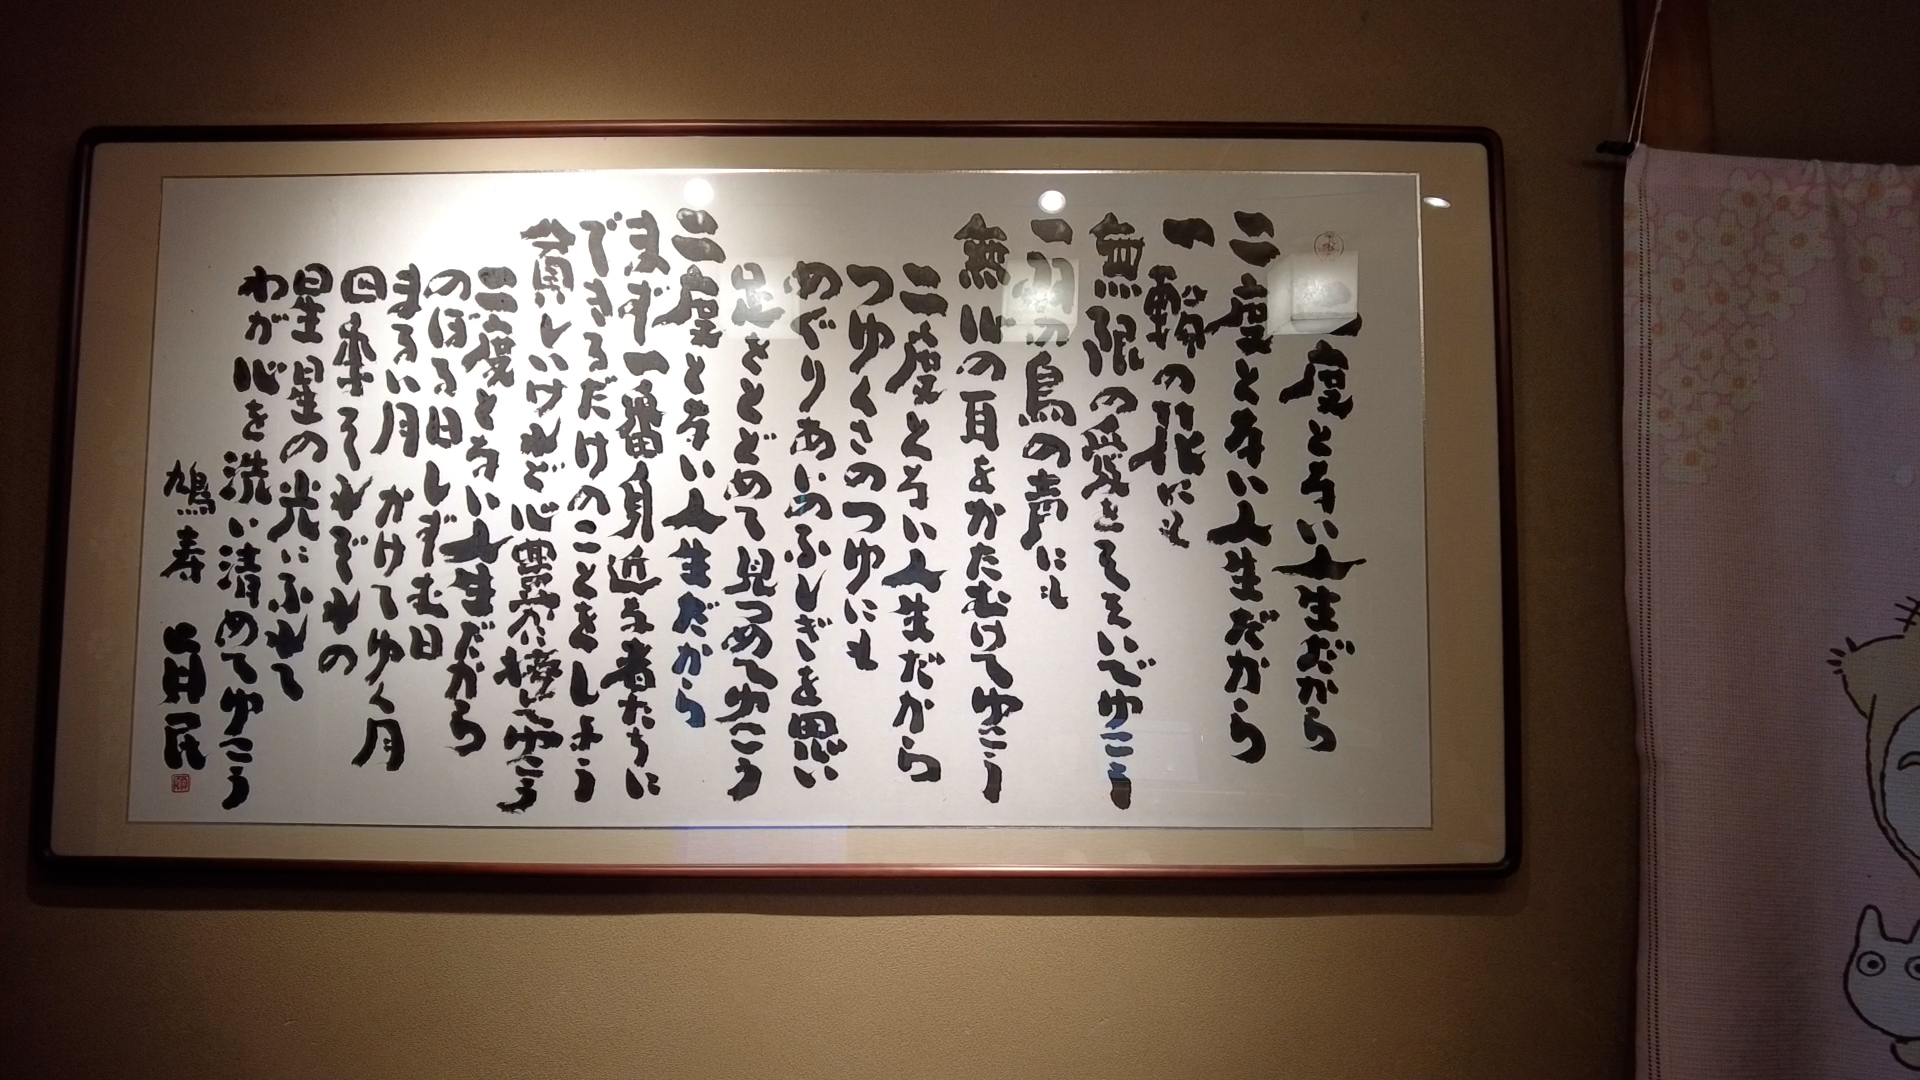 二度とない人生だから
二度とない人生だから
一輪の花にも
無限の愛をそそいでゆこう
一羽の鳥の声にも
無心の耳をかたむけてゆこう
二度とない人生だから
つゆくさのつゆにも
めぐりあいのふしぎを思い
足をとどめて見つめてゆこう
二度とない人生だから
まず一番身近な者たちに
できるだけのことをしよう
貧しいけれど心豊かに接してゆこう
二度とない人生だから
のぼる日しずむ日
まるい月かけてゆく月
四季それぞれの
星星の光にふれて
わが心を洗い清めてゆこう
鳩寿 真民